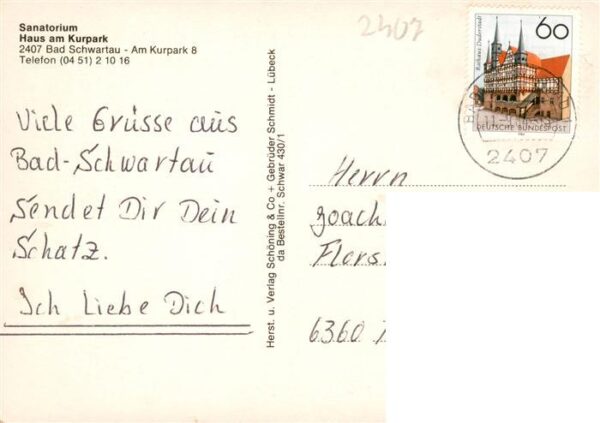 Sanatorium
Haus am Kurpark
2407 Bad Schwartau - Am Kurpark 8
Telefon (04 51) 2 10 16
2407
Rathaus Duderstadt
60
DEUTSCHE BUNDESPOST
2407
Viele Grüsse aus
Bad-Schwartau
Sendet Dir Dein
Schatz.
Ich Liebe Dich
Herst. u. Verlag Schöning & Co + Gebrüder Schmidt - Lübeck
da Bestellnr. Schwar 430/1
Herrn
Joach
Flors
6360